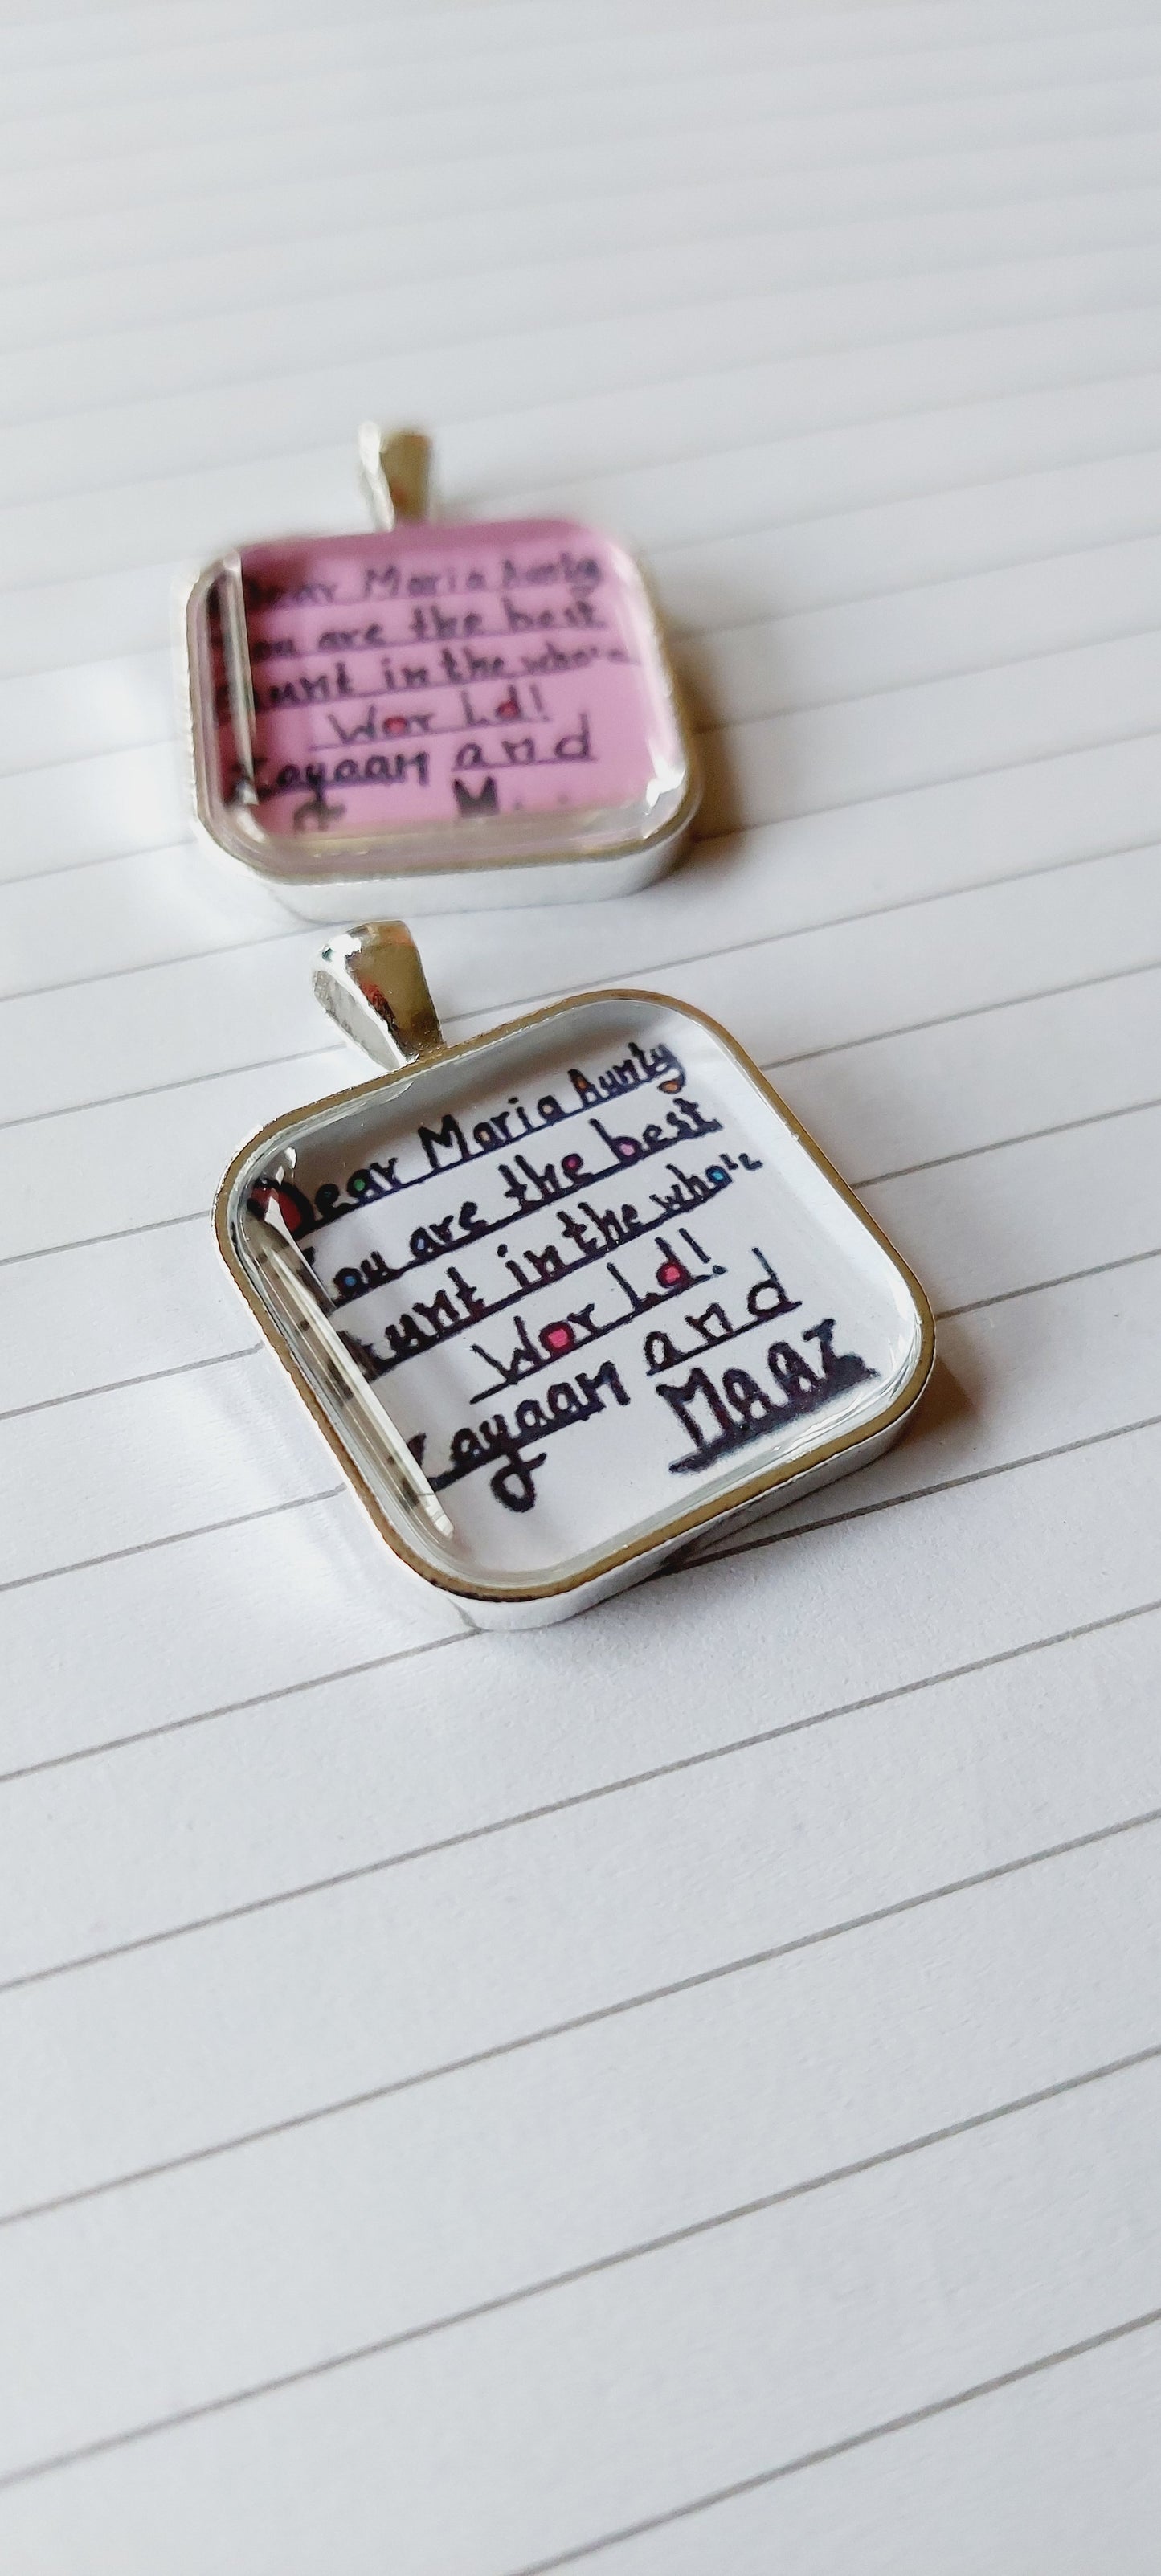 Dear Maria Aunty
You are the best
aunt in the
World!
and
Dear Maria Aunty
You are the best
Aunt in the
World!
and
Maaz